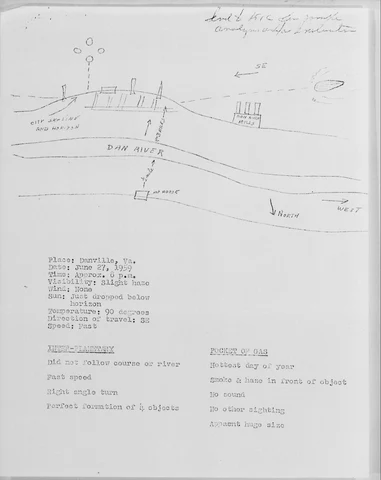 SE
CITY SKYLINE
AND HORIZON
DAN RIVER
MILLS
DAN RIVER
MY HOUSE
NORTH
WEST
Place: Danville, Va.
Date: June 27, 1959
Time: Approx. 6 p.m.
Visibility: Slight haze
Wind: None
Sun: Just dropped below
horizon
Temperature: 90 degrees
Direction of travel: SE
Speed: Fast
INTER-PLANETARY
Did not follow course or river
Fast speed
Right angle turn
Perfect formation of 4 objects
POCKET OF GAS
Hottest day of year
Smoke & haze in front of object
No sound
No other sighting
Apparent huge size